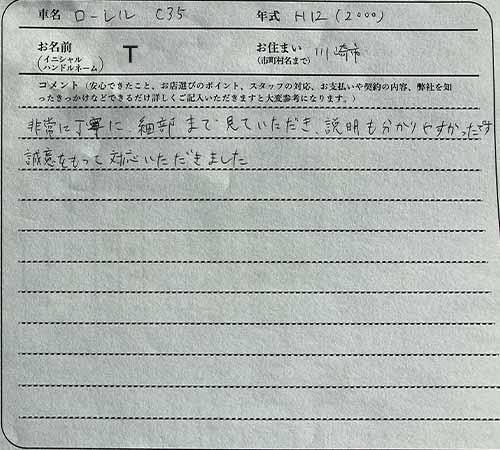 車名 ローレル C35 年式 H12 (2000)
お名前 T お住まい 川崎市
(イニシャル ハンドルネーム) (市町村名まで)
コメント (安心できたこと、お店選びのポイント、スタッフの対応、お支払いや契約の内容、弊社を知
ったきっかけなどできるだけ詳しくご記入いただきますと大変参考になります。)
非常に丁寧に、細部まで見ていただき、説明も分かりやすかったです
誠意をもって対応いただきました